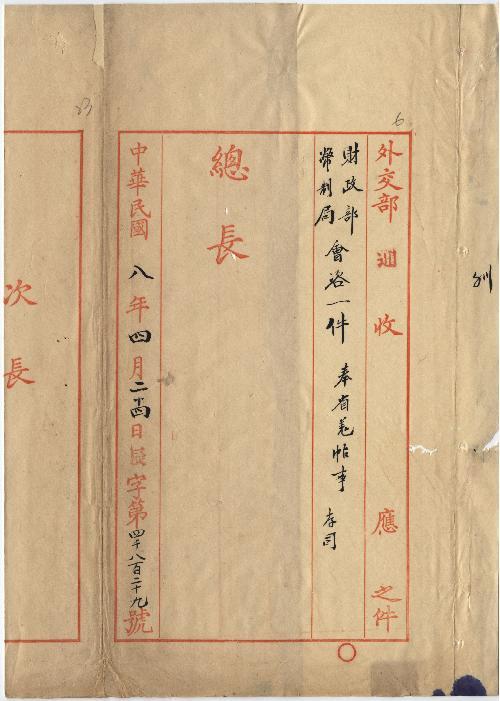 23
6
外交部 收 應 之件
財政部
幣制局
會咨一件 奉省羌帖事 存司
總長
中華民國八年四月二十四日 字第四千八百二十九號
次長